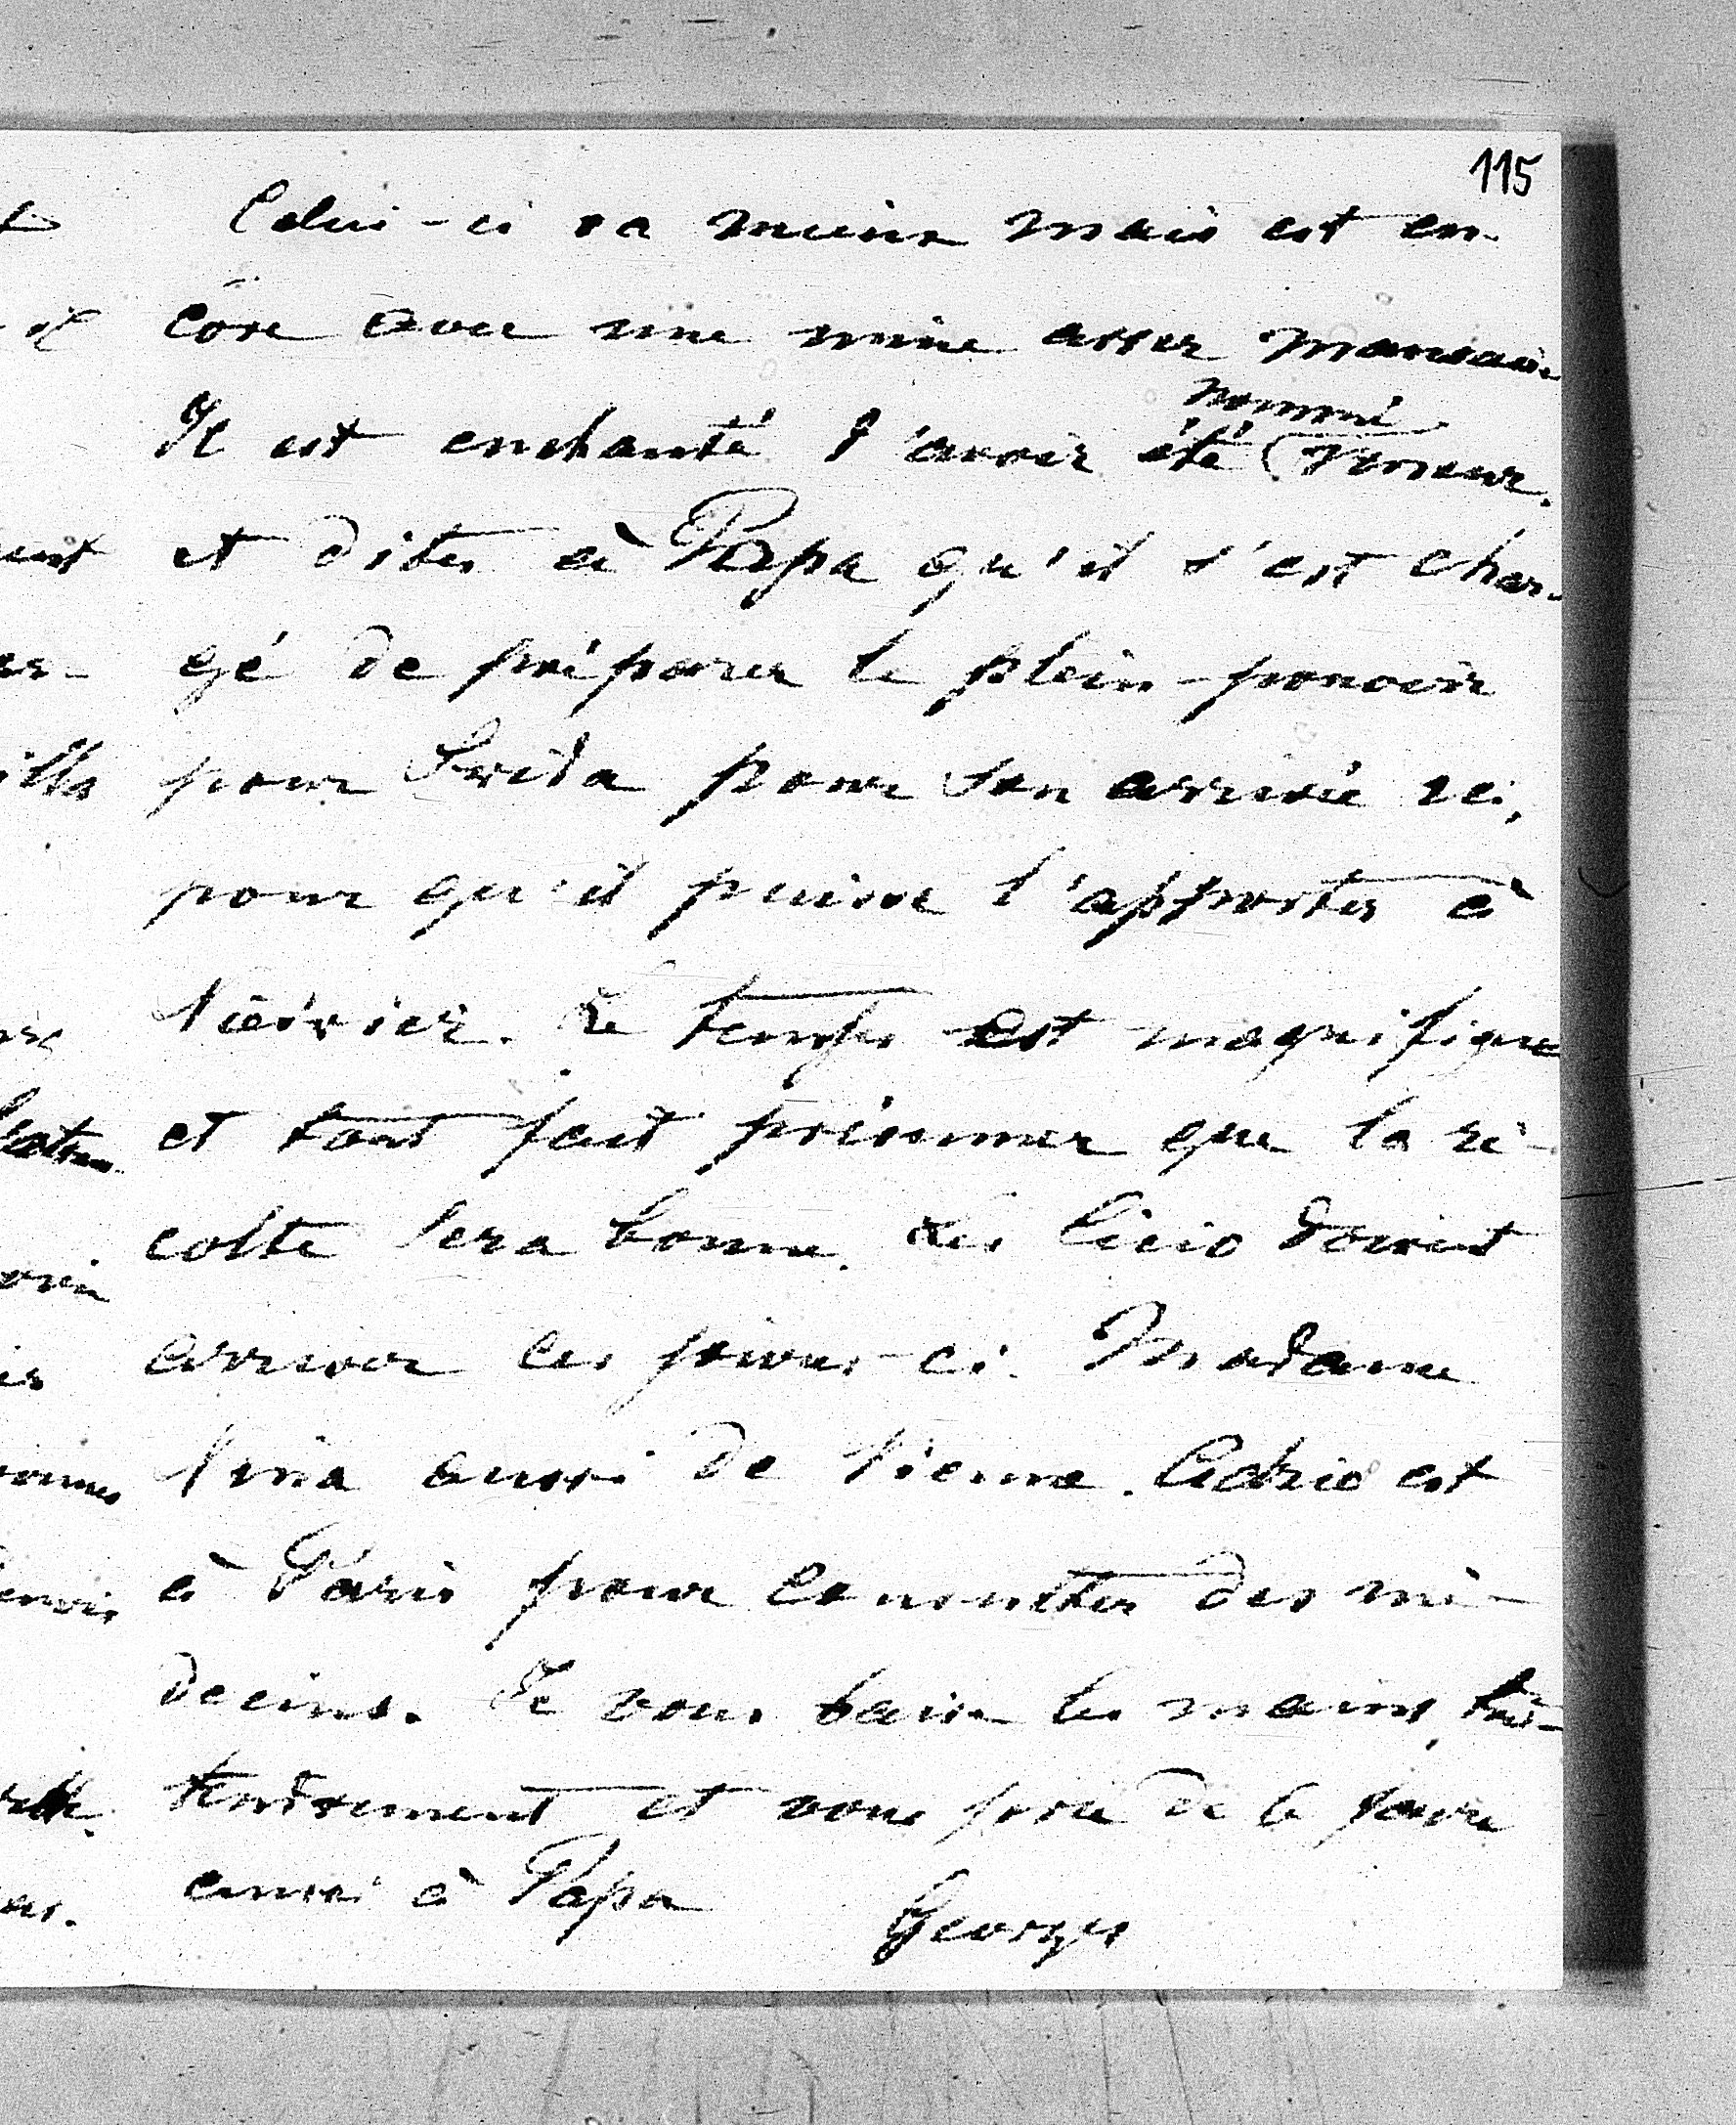 115
Celui-ci va mieux mais est en-
core avec une mine assez mauvaise
Il est enchanté d'avoir été nommé
et dites à Papa qu'il s'est char-
gé de préparer le plein-pouvoir
pour Frida pour son arrivée ici,
pour qu'il puisse l'apporter à
Le temps est magnifique
et tout fait présumer que la ré-
colte sera bonne. Les doivent
arriver ces jours-ci. Madame
Nina aussi de Vienne. est
à Paris pour consulter des mé-
decins. Je vous baise les mains très
tendrement et vous prie de le faire
aussi à Papa
Georges